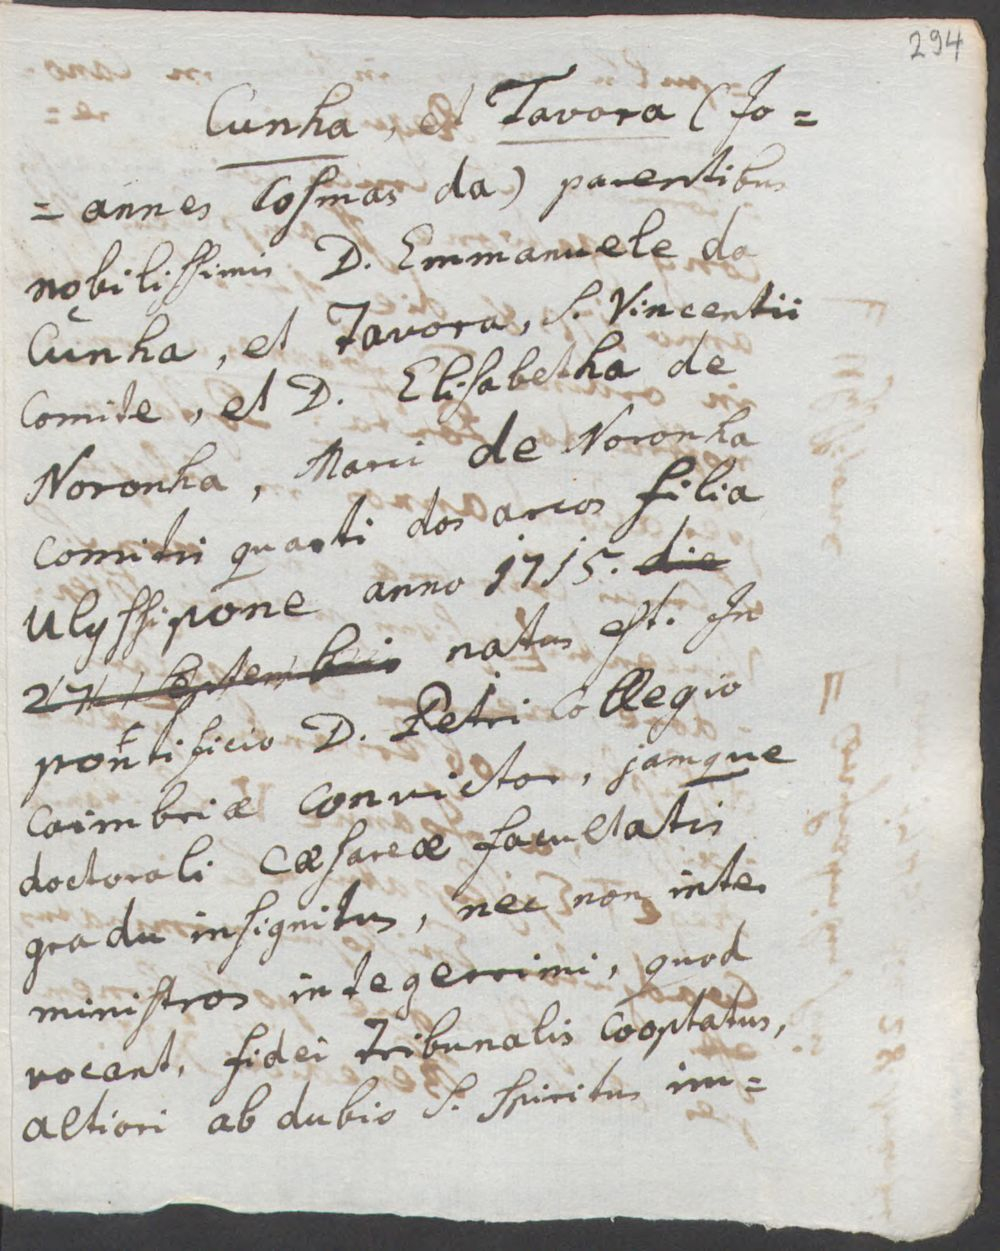 294
Cunha, et Tavora (Jo=
=annes Cosmas da) parentibus
nobilissimis D. Emmanuele da
Cunha, et Tavora, S. Vincentii
Comite, et D. Elisabetha de
Noronha, Marci de Noronha
comitis quarti dos arcos filia
Ulyssipone anno 1715. die
27 septembris natus est. In
pontificio D. Petri Collegio
Coimbriæ convictor, jamque
doctorali Cæsareæ facultatis
gradu insignitus, nec non inter
ministros integerrimi, quod
vocant, fidei tribunalis cooptatus,
altiori ab dubio S. Spiritus im=